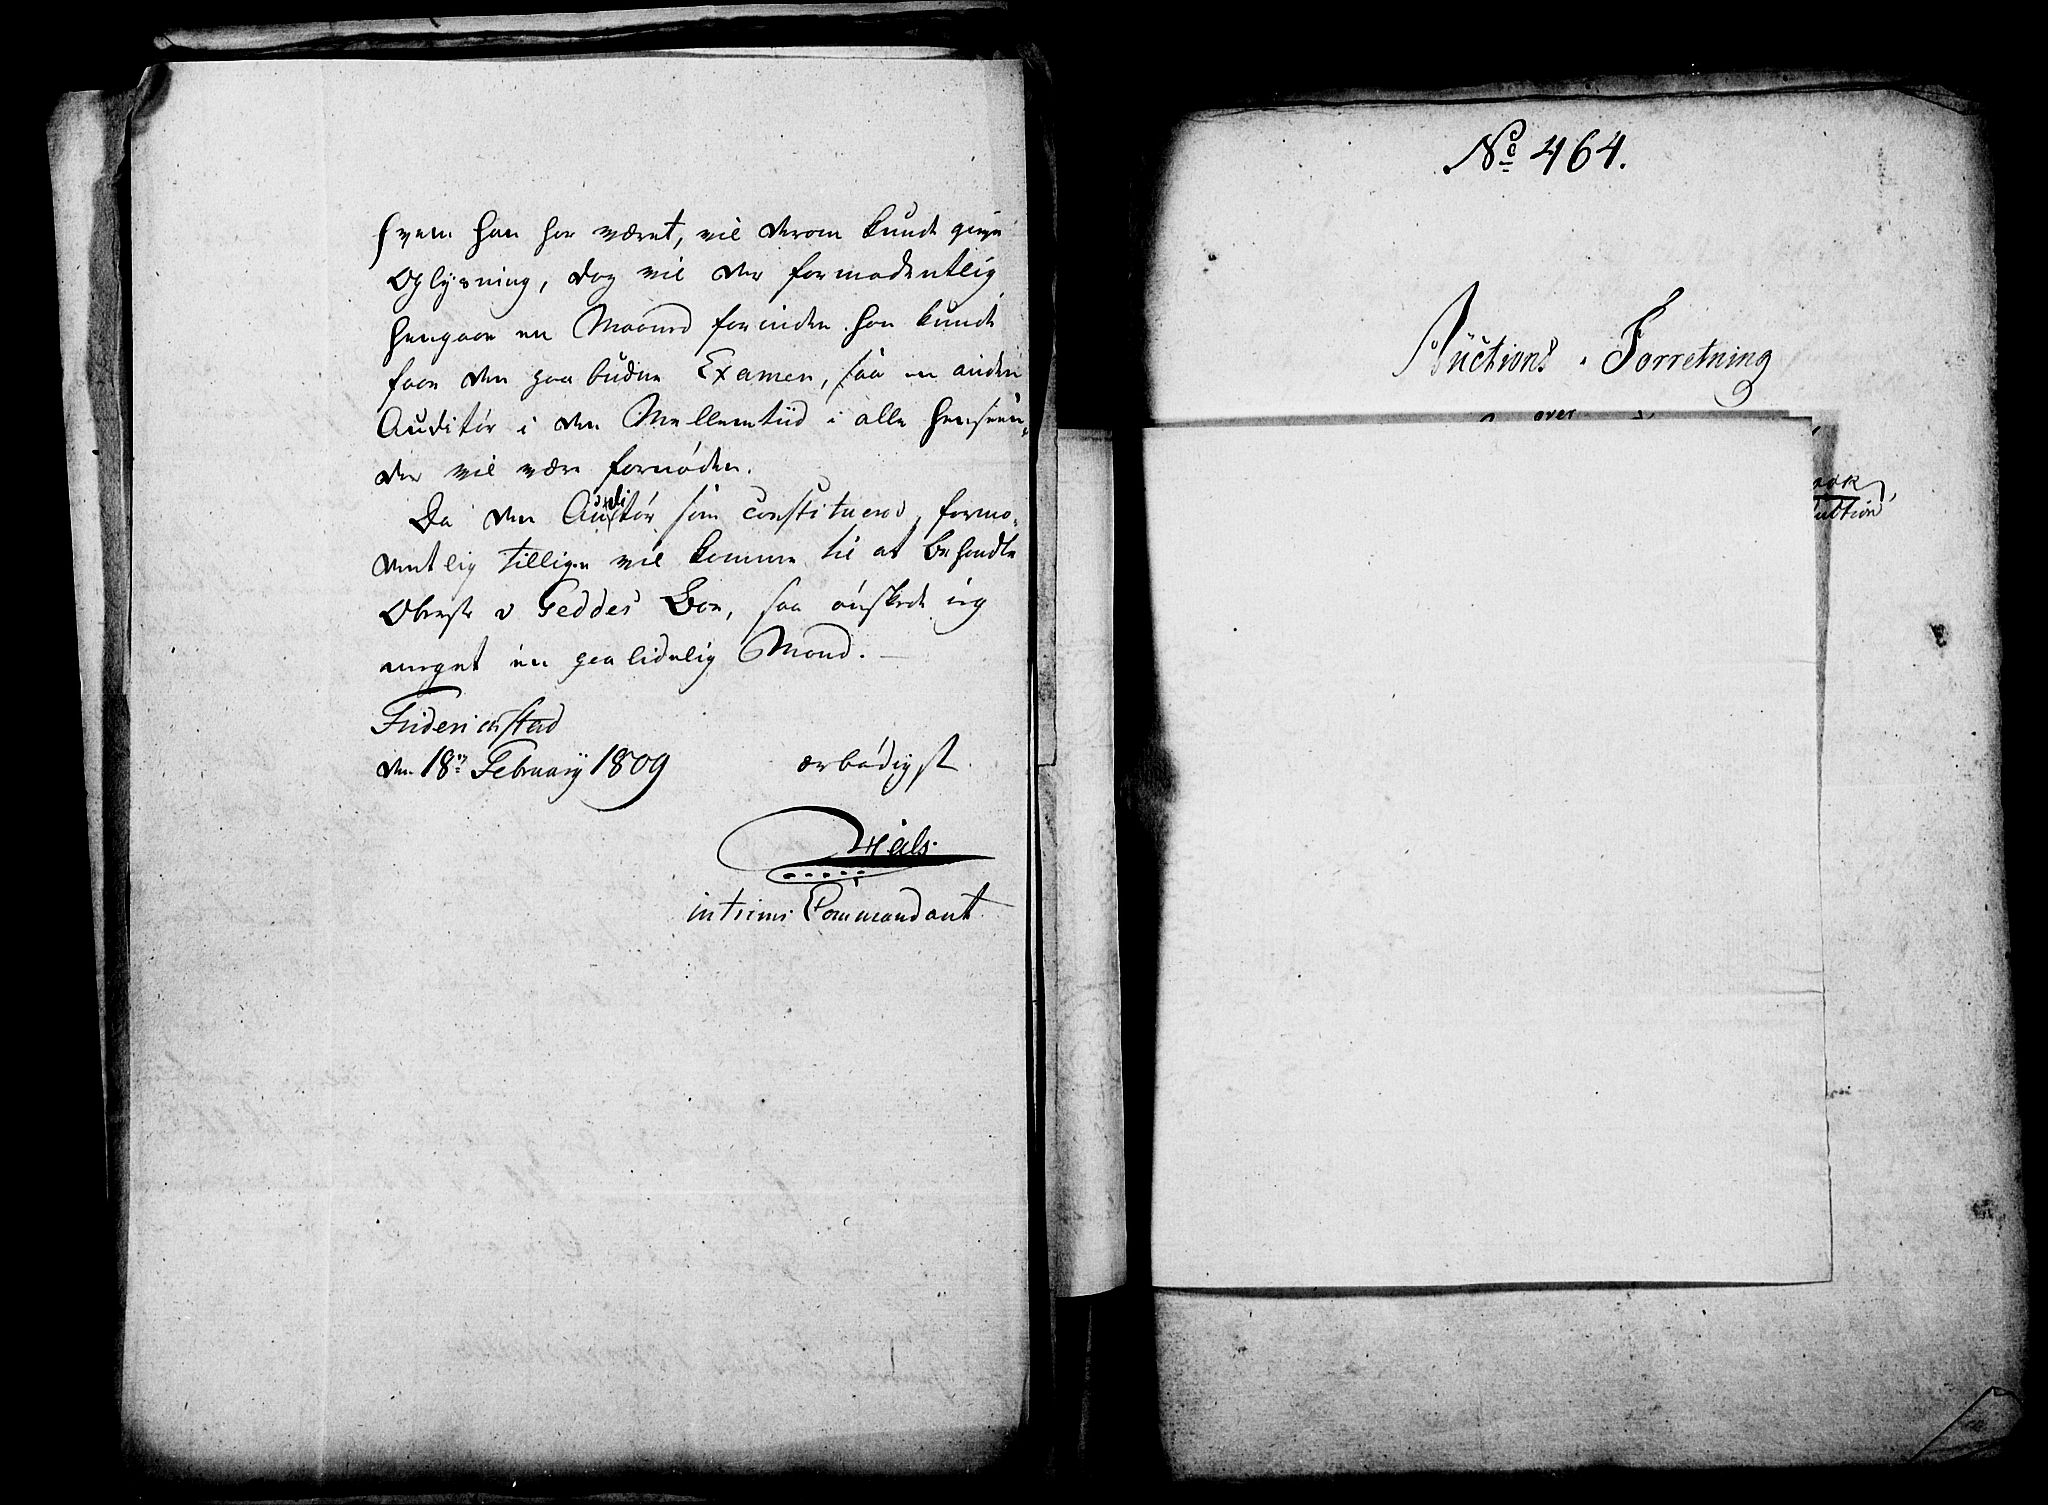 hvem han har været, vil derom kunde give
Oplysning, dog vil der formodentlig
hengaae en Maaned forinden han kunde
faae den paabudne Examen, saa en anden
Auditør i den Mellemtiid i alle Henseen-
der vil være fornøden.
Da den Auditør som constitueres, formo-
dentlig tillige vil komme til at behandle
Oberste v Geddes Boe, saa ønskede jeg
meget en paalidelig Mand. —
Friderichstad
den 18de February 1809
ærbødigst
Hals.
interims Commandant
No 464.
Auctions-Forretning
over
auction